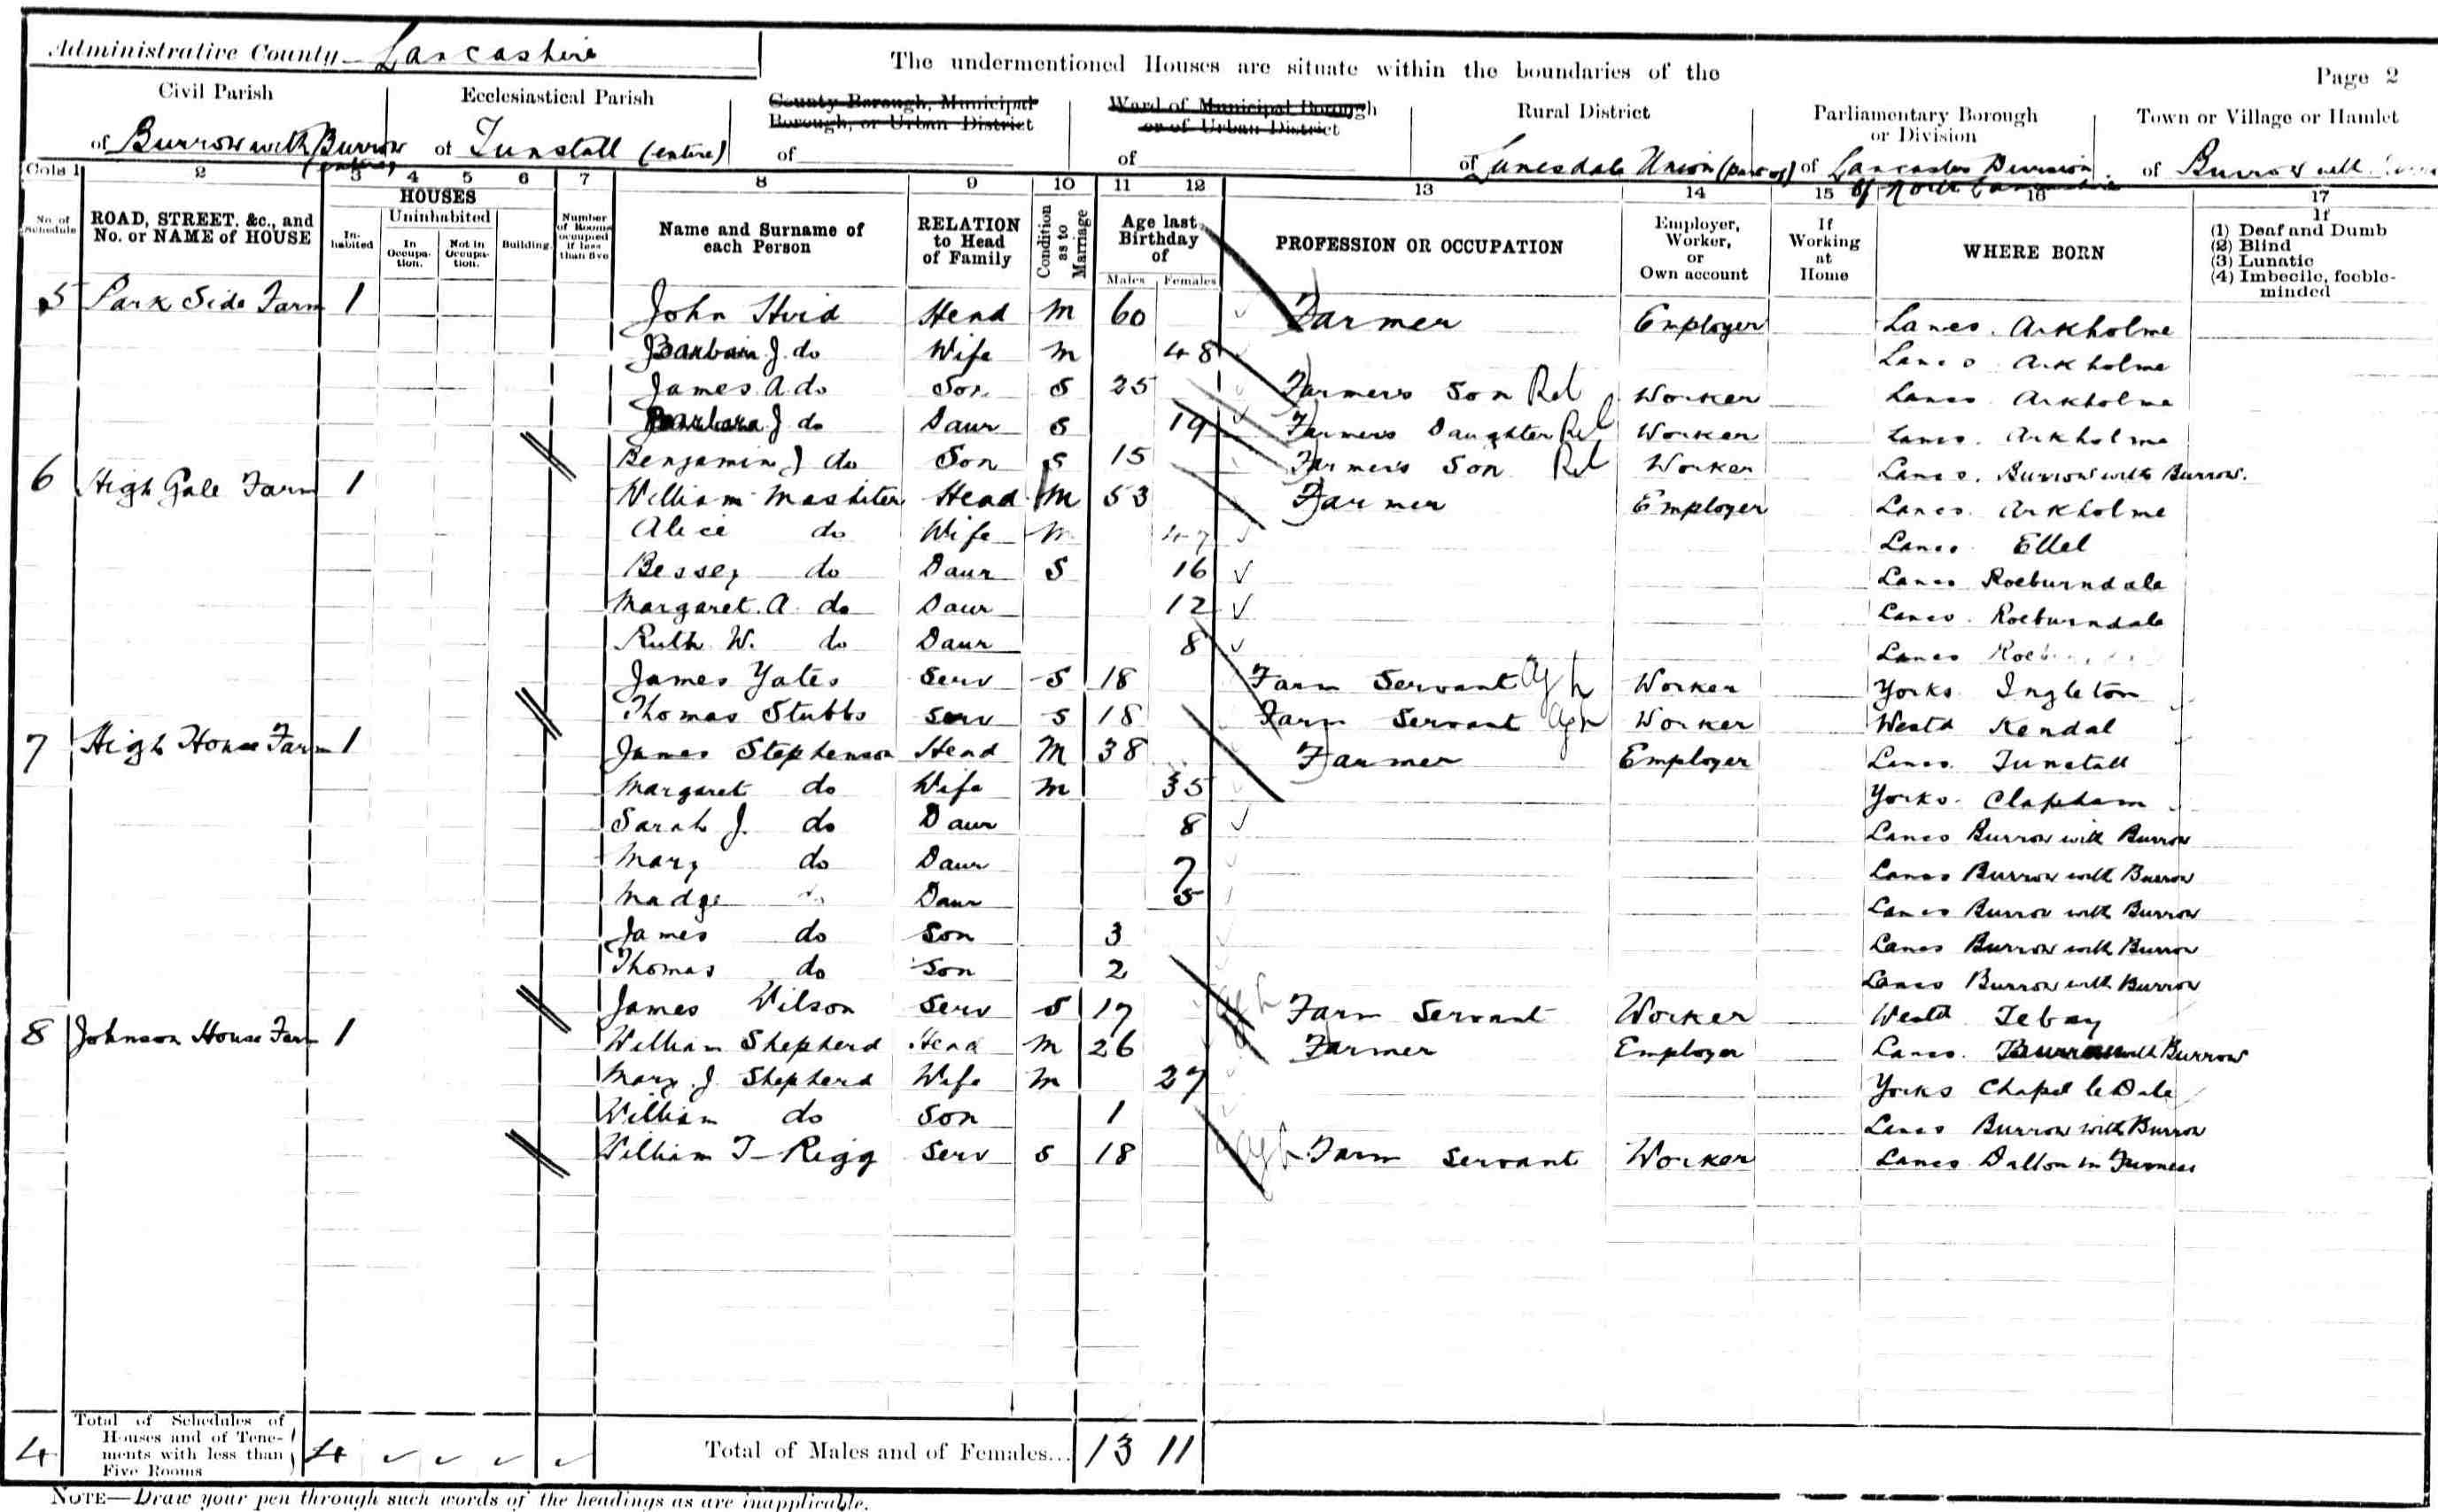 Administrative County Lancashire
The undermentioned Houses are situate within the boundaries of the
Page 2
Civil Parish
Ecclesiastical Parish
County Borough, Municipal Borough, or Urban District
Ward of Municipal Borough or of Urban District
Rural District
Parliamentary Borough or Division
Town or Village or Hamlet
of Burrow with Burrow (entire)
of Tunstall (entire)
of
of
of Lunesdale Union (part of)
of Lancaster Division of North Lancashire
of Burrow with
Cols 1 2 3 4 5 6 7 8 9 10 11 12 13 14 15 16 17
No. of Schedule
ROAD, STREET, &c., and No. or NAME of HOUSE
HOUSES
Inhabited
Uninhabited
In Occupation.
Not in Occupation.
Building
Number of Rooms occupied if less than five
Name and Surname of each Person
RELATION to Head of Family
Condition as to Marriage
Age last Birthday of
Males Females
PROFESSION OR OCCUPATION
Employer, Worker, or Own account
If Working at Home
WHERE BORN
If
(1) Deaf and Dumb
(2) Blind
(3) Lunatic
(4) Imbecile, feeble-minded
5 Park Side Farm 1 John Hird Head M 60 Farmer Employer Lancs. Arkholme
J. do Wife M 48 Lancs Arkholme
James A. do Son S 25 Farmer's Son Rel Worker Lancs Arkholme
Barbara J do Daur S 19 Farmer's Daughter Rel Worker Lancs. Arkholme
Benjamin J do Son S 15 Farmer's Son Rel Worker Lancs. Burrow with Burrow.
6 High Gale Farm 1 William Mashiter Head M 53 Farmer Employer Lancs. Arkholme
Alice do Wife M 47 Lancs. Ellel
Bessey do Daur S 16 Lancs Roeburndale
Margaret. A. do Daur 12 Lancs. Roeburndale
Ruth W. do Daur 8 Lancs
James Yates Serv S 18 Farm Servant Worker Yorks. Ingleton
Thomas Stubbs Serv S 18 Farm Servant Worker Westd Kendal
7 High House Farm 1 James Stephenson Head M 38 Farmer Employer Lancs. Tunstall
Margaret do Wife M 35 Yorks. Clapham
Sarah J. do Daur 8 Lancs Burrow with Burrow
Mary do Daur 7 Lancs Burrow with Burrow
Madge do Daur 5 Lancs Burrow with Burrow
James do Son 3 Lancs Burrow with Burrow
Thomas do Son 2 Lancs Burrow with Burrow
James Wilson Serv S 17 Farm Servant Worker Westd. Tebay
8 Johnson House Farm 1 William Shepherd Head M 26 Farmer Employer Lancs. Burrow with Burrow
Mary J. Shepherd Wife M 27 Yorks Chapel le Dale
William do Son 1 Lancs Burrow with Burrow
William T Rigg Serv S 18 Farm Servant Worker Lancs. Dalton in Furness
4 Total of Schedules of Houses and of Tenements with less than Five Rooms 4
Total of Males and of Females... 13 11
NOTE—Draw your pen through such words of the headings as are inapplicable.